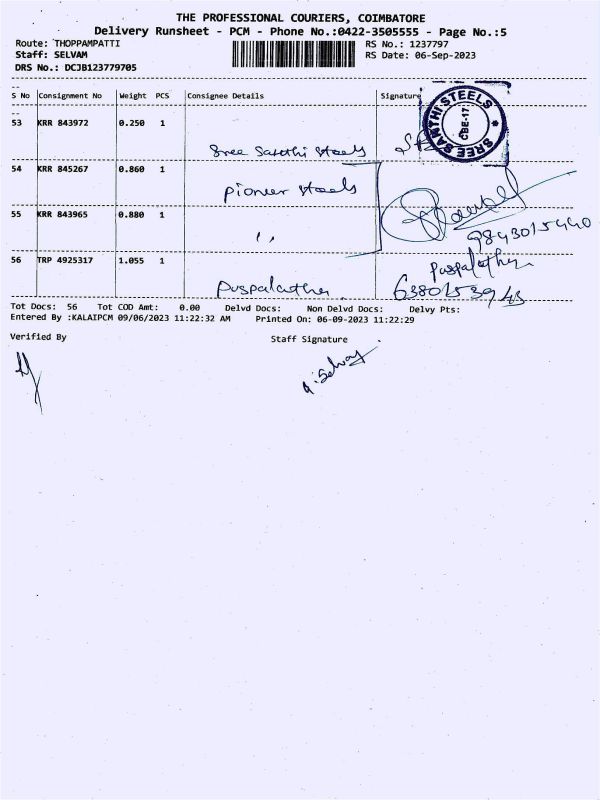 THE PROFESSIONAL COURIERS, COIMBATORE
Delivery Runsheet - PCM - Phone No.:0422-3505555 - Page No.:5
Route: THOPPAMPATTI RS No.: 1237797
Staff: SELVAM RS Date: 06-Sep-2023
DRS No.: DCJB123779705
S No Consignment No Weight PCS Consignee Details Signature
SREE SANTHI STEELS * CBE-17 *
53 KRR 843972 0.250 1
Sree Santhi Steels
54 KRR 845267 0.860 1
Pioneer Steels
55 KRR 843965 0.880 1
,,
9843015440
56 TRP 4925317 1.055 1
Puspalatha Puspalatha
Tot Docs: 56 Tot COD Amt: 0.00 Delvd Docs: Non Delvd Docs: Delvy Pts:
Entered By :KALAIPCM 09/06/2023 11:22:32 AM Printed On: 06-09-2023 11:22:29
Verified By Staff Signature
A. Selvam